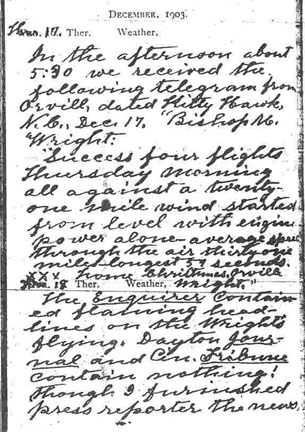 DECEMBER, 1903.
Thur. 17. Ther. Weather,
In the afternoon about
5:30 we received the
following telegram from
Orville, dated Kitty Hawk,
N.C., Dec. 17. "Bishop M.
Wright:
"Success four flights
Thursday morning
all against a twenty-
one mile wind started
from level with engine
power alone average speed
through the air thirty one
miles longest 57 seconds.
XXX home Christmas. Orville
18 Ther. Weather, Wright."
The Enquirer contain-
ed flaming head-
lines on the Wrights'
flying. Dayton Jour-
nal and Cin. Tribune
contain nothing!
though I furnished
press reporter the news,